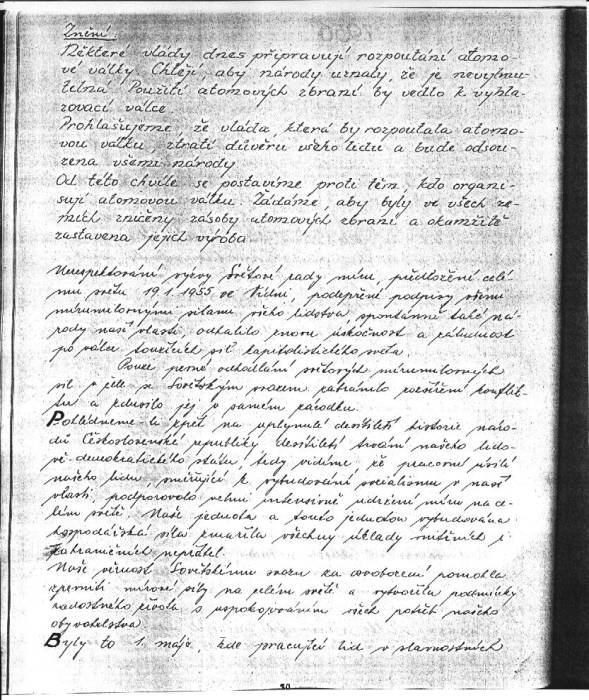 Znění:
Některé vlády dnes připravují rozpoutání atomo-
vé války. Chtějí, aby národy uznaly, že je nevyhnu-
telná. Použití atomových zbraní by vedlo k vyhla-
zovací válce.
Prohlašujeme, že vláda, která by rozpoutala atomo-
vou válku, ztratí důvěru všeho lidu a bude odsou-
zena všemi národy.
Od této chvíle se postavíme proti těm, kdo organi-
sují atomovou válku. Žádáme, aby byly ve všech ze-
mích zničeny zásoby atomových zbraní a okamžitě
zastavena jejich výroba.
Nerespektování výzvy Světové rady míru, předložení celé-
mu světu 19.1.1955 ve Vídni, podepřené podpisy všemi
mírumilovnými silami všeho lidstva, spontánně také ná-
rody naší vlasti, odhalilo znovu úskočnost a
po válce toužících sil kapitalistického světa.
Pouze pevné odhodlání světových mírumilovných
sil v čele se Sovětským svazem zabránilo rozšíření konflik-
tu a zdusilo jej v samém zárodku.
Pohlédneme-li zpět na uplynulé desítiletí historie náro-
dů Československé republiky desítiletí trvání našeho lido-
vě-demokratického státu, tedy vidíme, že pracovní úsilí
našeho lidu, směřující k vybudování socialismu v naší
vlasti, podporovalo velmi intensivně udržení míru na ce-
lém světě. Naše jednota a touto jednotou vybudována
hospodářská síla zmařila všechny úklady vnitřních i
zahraničních nepřátel.
Naše věrnost Sovětskému svazu za osvobození pomohla
zpevniti mírové síly na celém světě a vytvořila podmínky
radostného života s uspokojováním všech potřeb našeho
obyvatelstva.
Byly to 1. máje, kde pracující lid v slavnostních